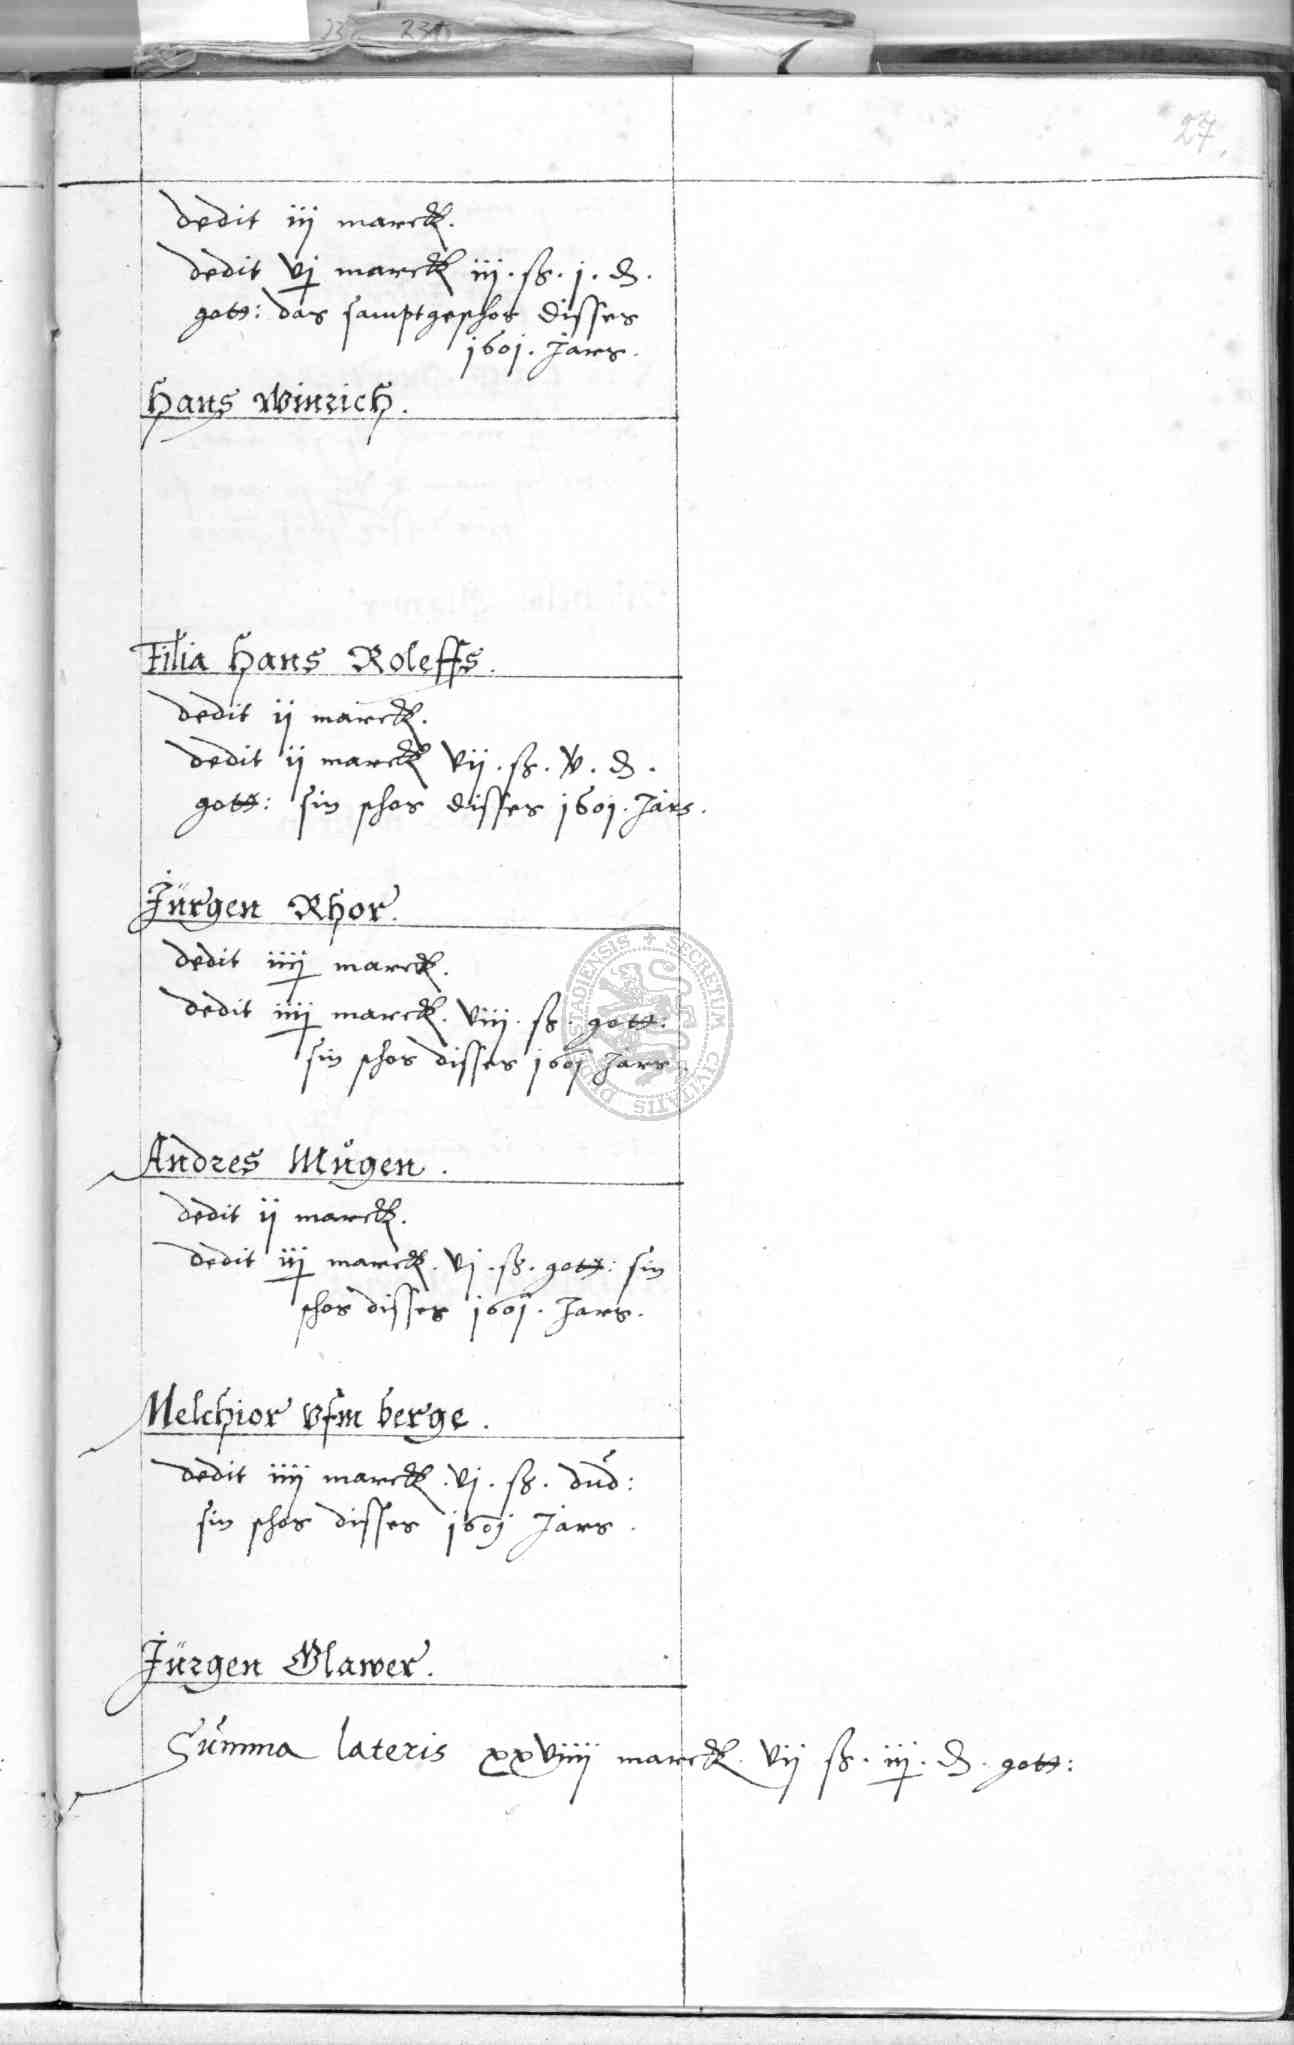 27.
dedit iij marck.
dedit vj marck iij. ß. j. d.
gott: das samptgeschos disses
1601. Jars.
Hans Winrich.
Filia Hans Roleffs.
dedit ij marck.
dedit ij marck vij. ß. v. d.
gott: sin schos disses 1601. Jars.
Jürgen Rhor.
dedit iiij marck.
dedit iiij marck. viij. ß. gott:
sin schos disses 1601 Jars.
Andres Mügen.
dedit ij marck.
dedit iij marck. vj. ß. gott: sin
schos disses 1601. Jars.
Melchior vfm berge.
dedit iiij marck. vj. ß. dud:
sin schos disses 1601 Jars.
Jürgen Glawer.
Summa lateris xxviiij marck. vij ß. iij. d. gott:
SECRETUM CIVITATIS DUDERSTADIENSIS